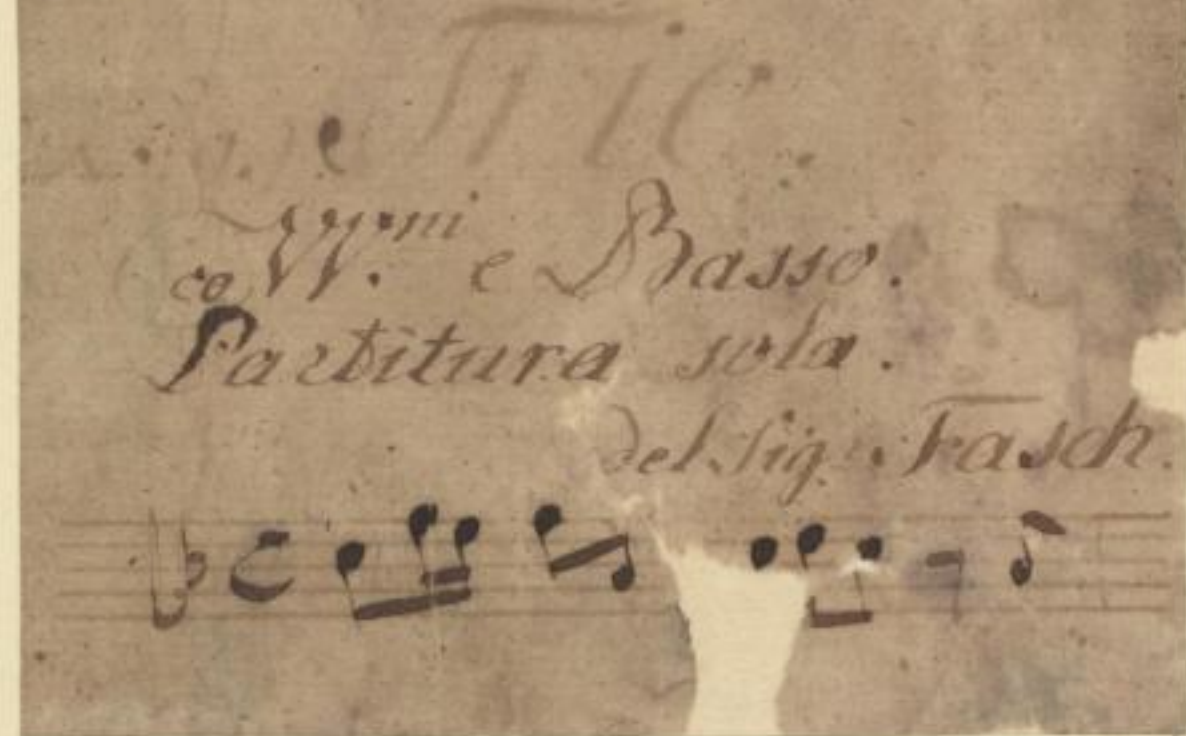 co VV.ni e Basso.
Partitura sola.
del Sig. Fasch.